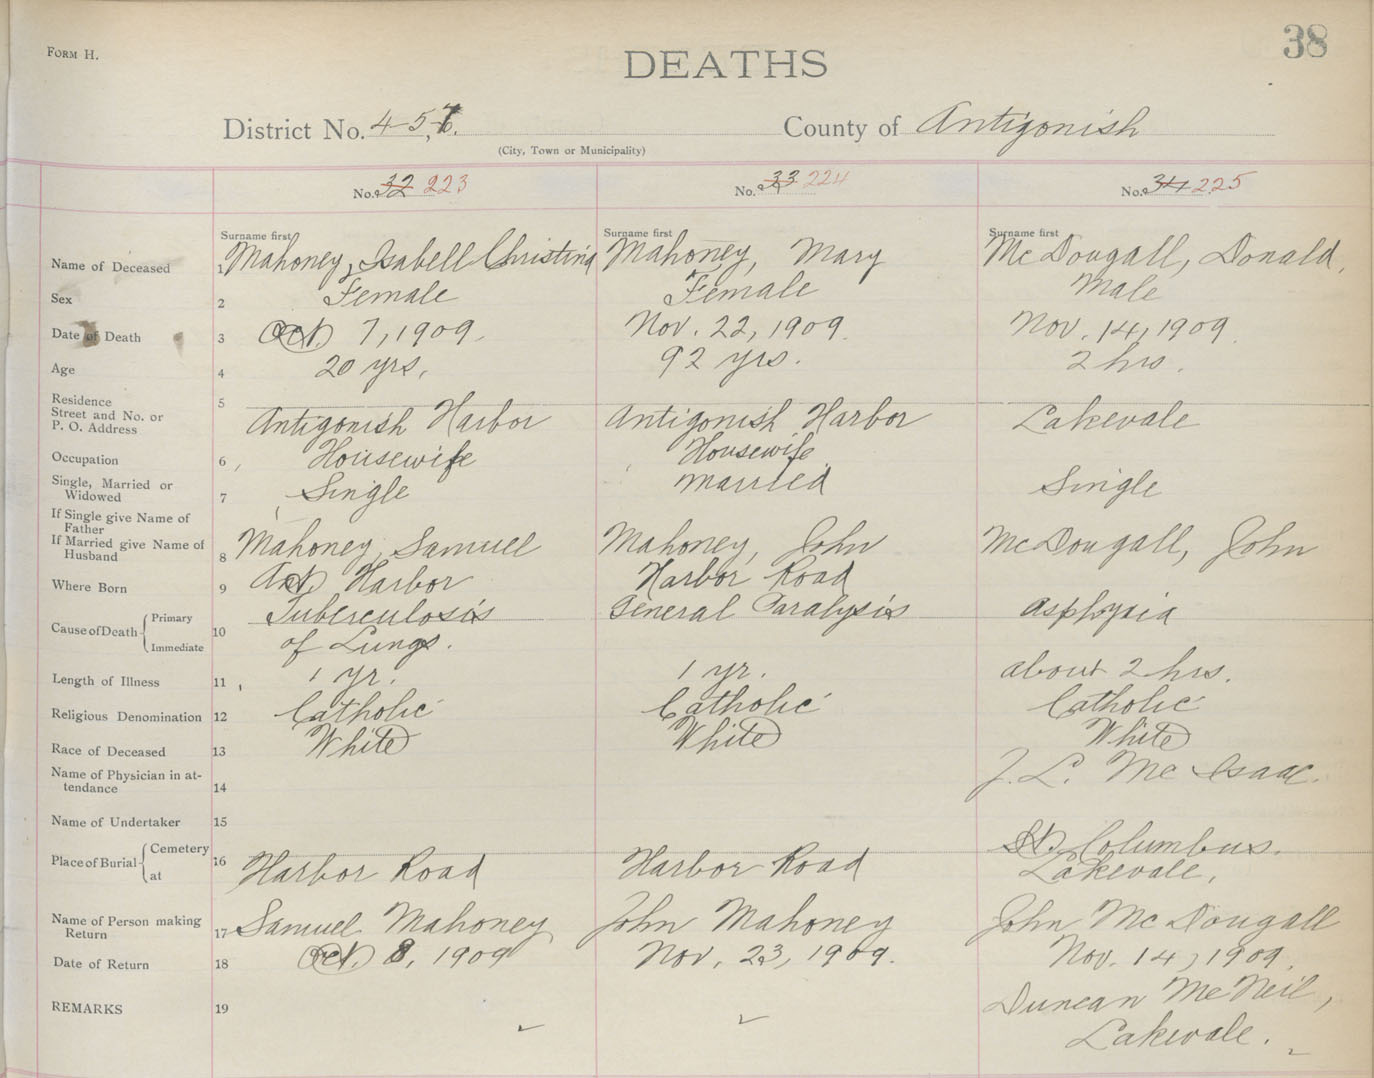 38
FORM H.
DEATHS
District No. 4-5,7. County of Antigonish
(City, Town or Municipality)
No. 32 223 No. 33 224 No. 34 225
Surname first Surname first Surname first
Name of Deceased 1 Mahoney, Isabell Christina Mahoney, Mary McDougall, Donald,
Sex 2 Female Female Male
Date of Death 3 Oct 7, 1909. Nov. 22, 1909. Nov. 14, 1909.
Age 4 20 yrs. 92 yrs. 2 hrs.
Residence
Street and No. or
P. O. Address 5 Antigonish Harbor Antigonish Harbor Lakevale
Occupation 6 Housewife Housewife
Single, Married or
Widowed 7 Single married Single
If Single give Name of
Father
If Married give Name of
Husband 8 Mahoney, Samuel Mahoney, John McDougall, John
Where Born 9 Ant Harbor Harbor Road
Cause of Death Primary 10 Tuberculosis General Paralysis Asphyxia
Immediate of Lungs.
Length of Illness 11 1 yr. 1 yr. about 2 hrs.
Religious Denomination 12 Catholic Catholic Catholic
Race of Deceased 13 White White White
Name of Physician in at-
tendance 14 J. L. McIsaac.
Name of Undertaker 15
Place of Burial Cemetery 16 St. Columbus.
at Harbor Road Harbor Road Lakevale,
Name of Person making
Return 17 Samuel Mahoney John Mahoney John McDougall
Date of Return 18 Oct. 8, 1909 Nov. 23, 1909. Nov. 14, 1909.
REMARKS 19 Duncan McNeil,
Lakevale.